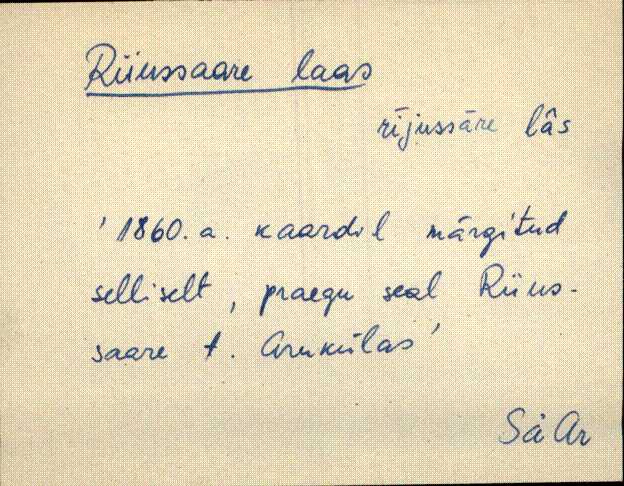 Riiussaare laas
rījussāre lâs
' 1860. a. kaardil märgitud
selliselt, praegu seal Riius-
saare t. Aruküläs'
Sä Ar